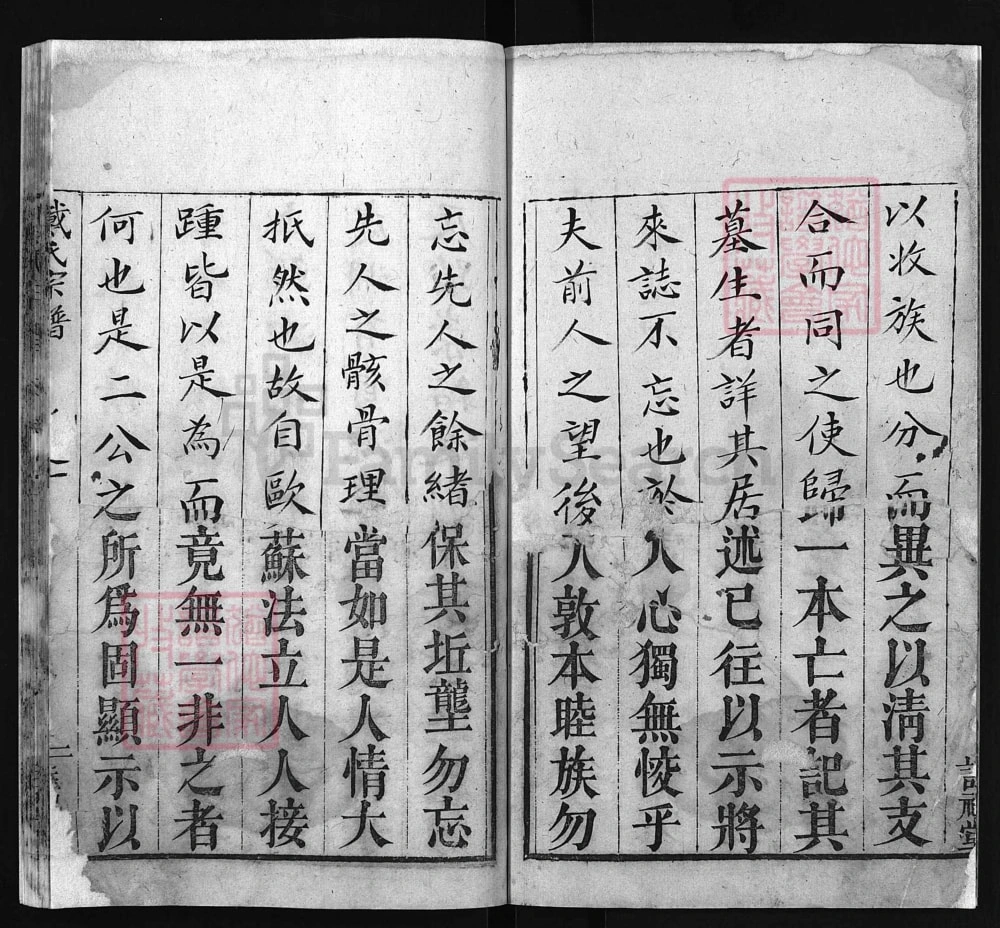 以收族也分而異之以清其支
合而同之使歸一本亡者記其
墓生者詳其居述已往以示將
來誌不忘也於人心獨無悛乎
夫前人之望後人敦本睦族勿
忘先人之餘緒保其坵壟勿忘
先人之骸骨理當如是人情大
抵然也故自歐蘇法立人人接
踵皆以是為而竟無一非之者
何也是二公之所爲固顯示以
戴氏宗譜
FamilySearch